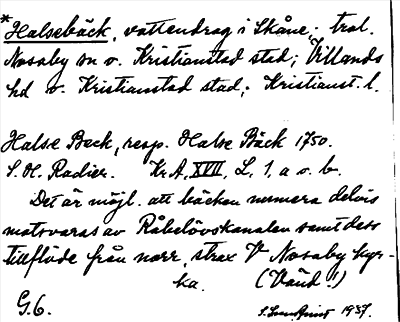 *Halsebäck, vattendrag i Skåne; trol.
Nosaby sn o. Kristianstad stad; Villands
hd o. Kristianstad stad; Kristianst. l.
Halse Beck, resp. Halse Bäck 1750.
S. H. Radier. Kr. A, XVII, L, 1, a o. b.
Det är möjl. att bäcken numera delvis
motsvaras av Råbelövskanalen samt dess
tillflöde från norr, strax V Nosaby kyr-
ka. (Vänd!)
G. 6. 1937.